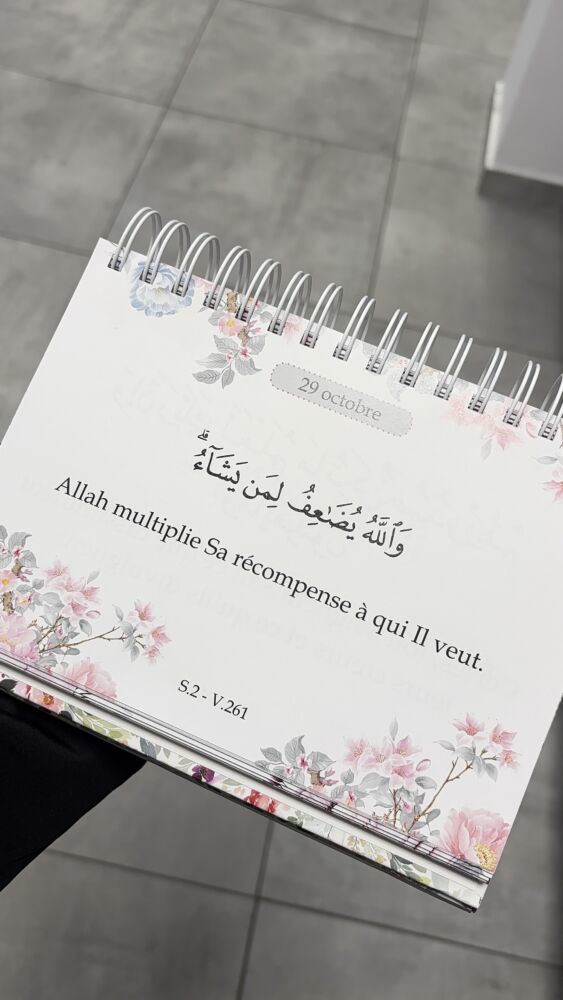 29 octobre
وَٱللَّهُ يُضَـٰعِفُ لِمَن يَشَآءُ ۗ
Allah multiplie Sa récompense à qui Il veut.
S.2 - V.261